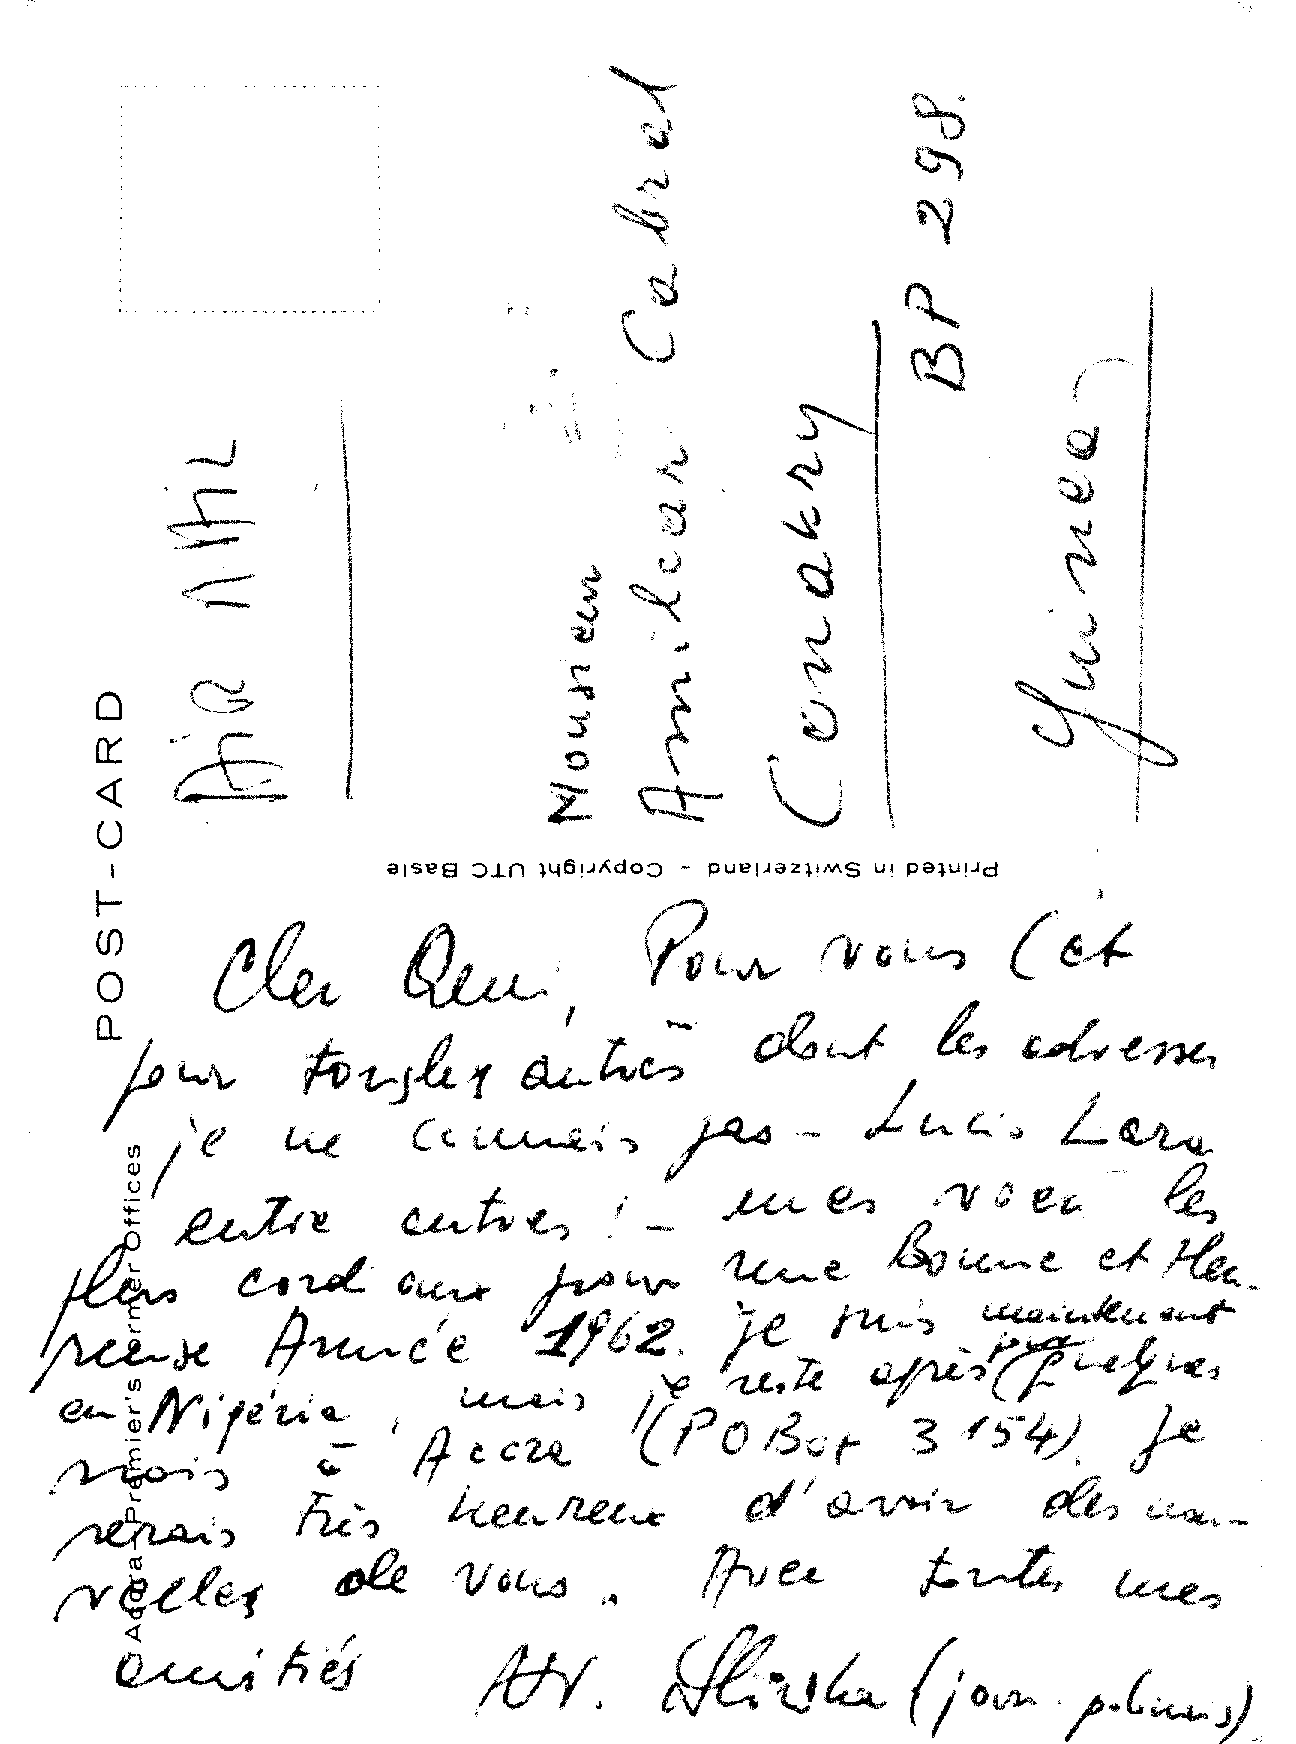 POST-CARD
AIR MAIL
Monsieur
Amilcar Cabral
Conakry
BP 298.
Guinea
Printed in Switzerland - Copyright UTC Basle
Accra, Premier's former Offices
Cher Ami, Pour vous (et
pour tous les autres dont les adresses
je ne connais pas - Lucio Lara
entre autres! - mes voeu les
plus cordiaux pour une Bonne et Heu-
reuse Année 1962. Je suis maintenant
en Nigéria, mais je reste après quelques
mois à Accra (PO Box 3154). Je
serais très heureux d'avoir des nou-
velles de vous. Avec toutes mes
amitiés (journ. polonais)